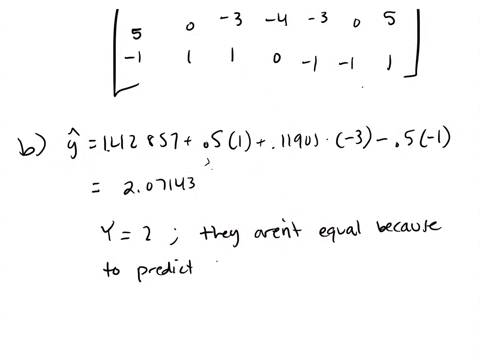 5 0 -3 -4 -3 0 5
-1 1 1 0 -1 -1 1
b) ŷ = 1.42857 + .5(1) + .11905 · (-3) - .5(-1)
= 2.07143
Y = 2 ; they aren't equal because
to predict